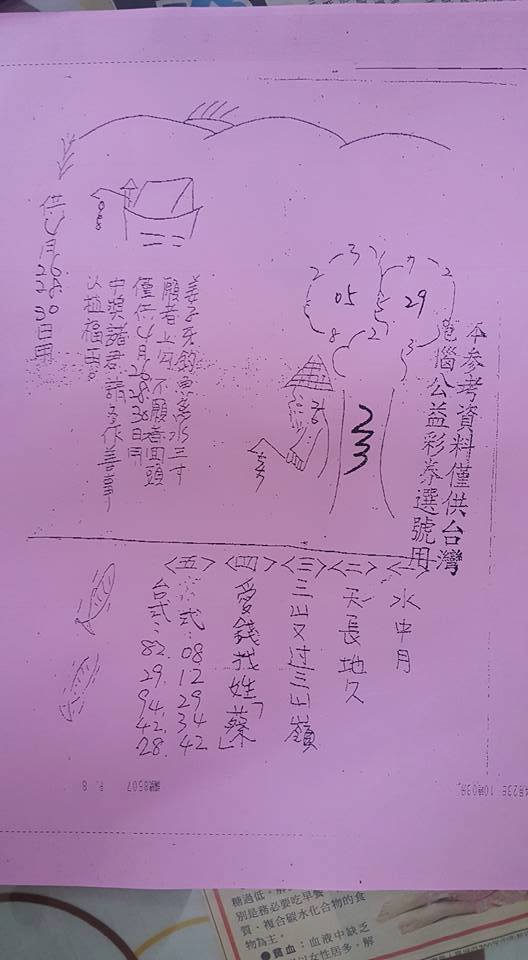 本参考資料僅供台灣
電腦公益彩券選號用
3
2
05
8
7
2
29
3
2
233
姜子牙釣魚離水三寸
願者上勾 不願者回頭
僅供4月26.28.30日用
中獎諸君請多作善事
以植福田。
供4月26.28.30日用
<一>水中月
<二>天長地久
<三>三山又过三山嶺
<四>愛錢找姓「蔡」
<五>式:08 12 29 34 42
台式:82.29.94.42.28.
月23日 10時03分
8507 P. 8
糖過低。
別是務必要吃早餐
質、複合碳水化合物的食
物為主。
●貧血：血液中缺乏
以女性居多，解